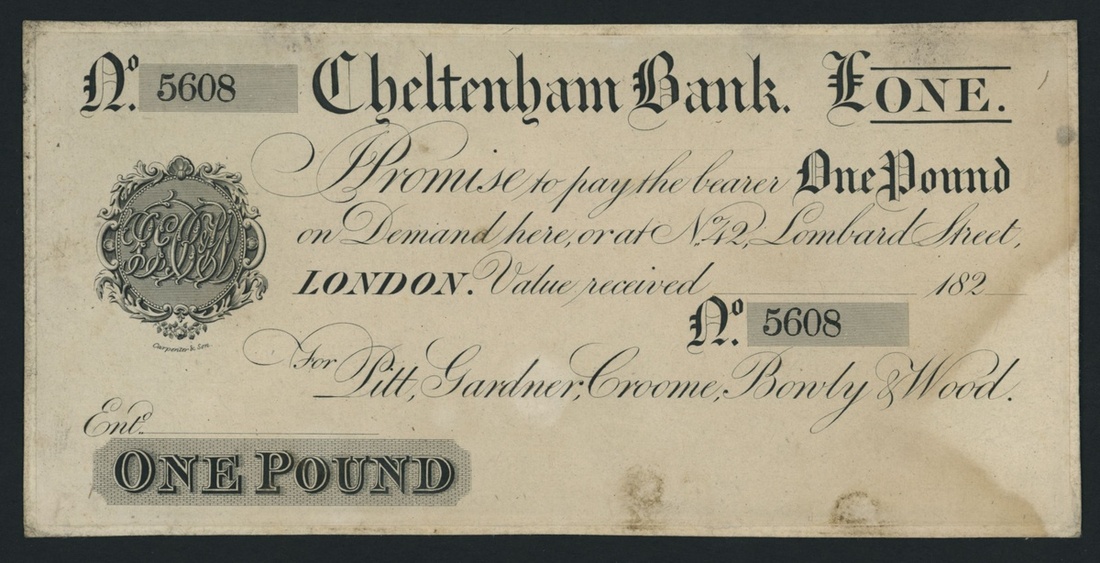 No. 5608 Cheltenham Bank. £ONE.
I Promise to pay the bearer One Pound
on Demand here, or at No. 42, Lombard Street,
LONDON. Value received 182
No. 5608
For Pitt, Gardner, Croome, Bowly & Wood.
Carpenter & Son
Entd.
ONE POUND